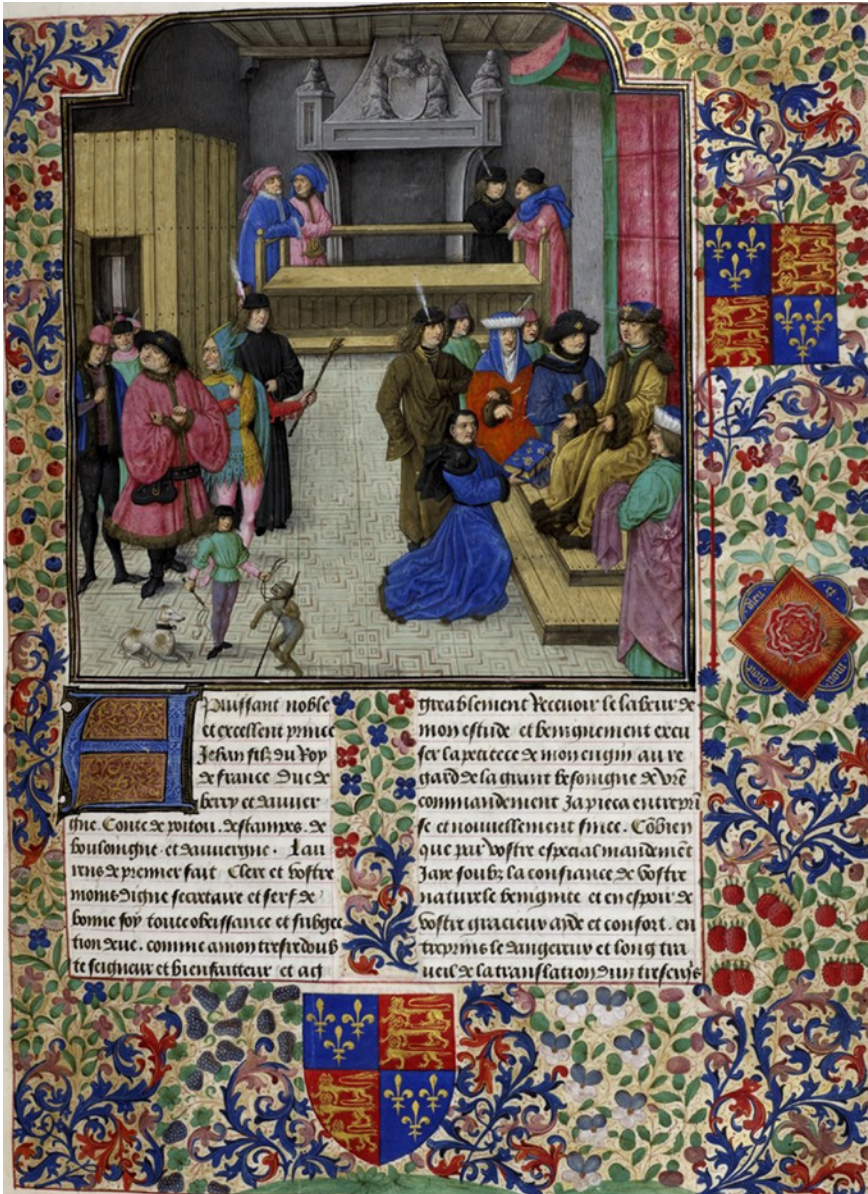 A puissant noble
et excellent prince
Jehan filz du Roy
de france Duc de
berry et dauuer
gne. Conte de poitou. destampes. de
bouloingne. et dauuergne. Lau
rens de premier fait Clerc et vostre
moins digne secretaire et serf de
bonne foy toute obeissance et subgec
tion deue. comme a mon tresredoub
te seigneur et bienfaitteur et ag
greablement Receuoir le labeur de
mon estude et benignement excu
ser la petitece de mon engin au re
gard de la grant besoingne de vr̃e
commandement Japieca entrepri
se et nouuellement finee. Cõbien
que par vostre especial mandemẽt
Jaye soubz la confiance de vostre
naturele benignite et en espoir de
vostre gracieux ayde et confort. en
treprins le dangereux et long tra
ueil de la translation dun
dieu et
mon droit